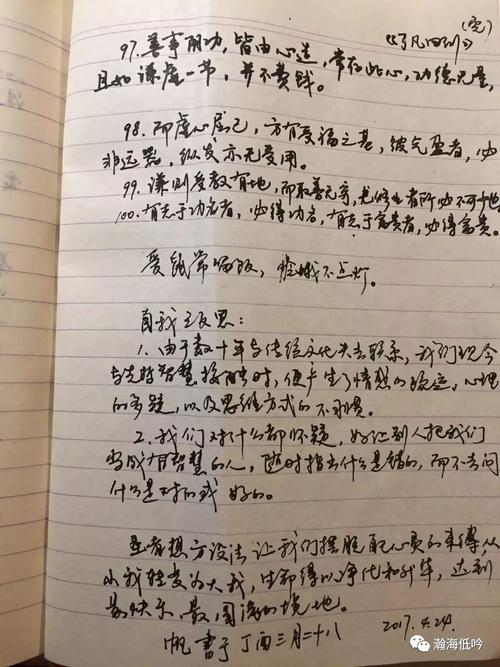 (完)
《了凡四训》
97. 善事阴功,皆由心造,常存此心,功德无量,
且如谦虚一节,并不费钱。
98. 而虚心屈己,方有受福之基,彼气盈者,必
非远器,纵发亦无受用。
99. 谦则受教有地,而取善无穷,尤修业者所必不可少也
100. 有志于功名者,必得功名,有志于富贵者,必得富贵。
爱鼠常留饭,怜蛾不点灯。
自我之反思:
1. 由于数十年与传统文化失去联系,我们现今
与先哲智慧接触时,便产生了情想的,心理
的多疑,以及思维方式的不习惯。
2. 我们对什么都怀疑,好让别人把我们
当成有智慧的人,随时指出什么是错的,而不去问
什么是对的或好的。
圣者想方设法让我们摆脱配心灵的束缚,从
小我转变为大我,生命得以净化和升华,达到
最快乐、最圆满的境地。
帆 书于丁酉三月二十八
2017.4.24.
瀚海低吟